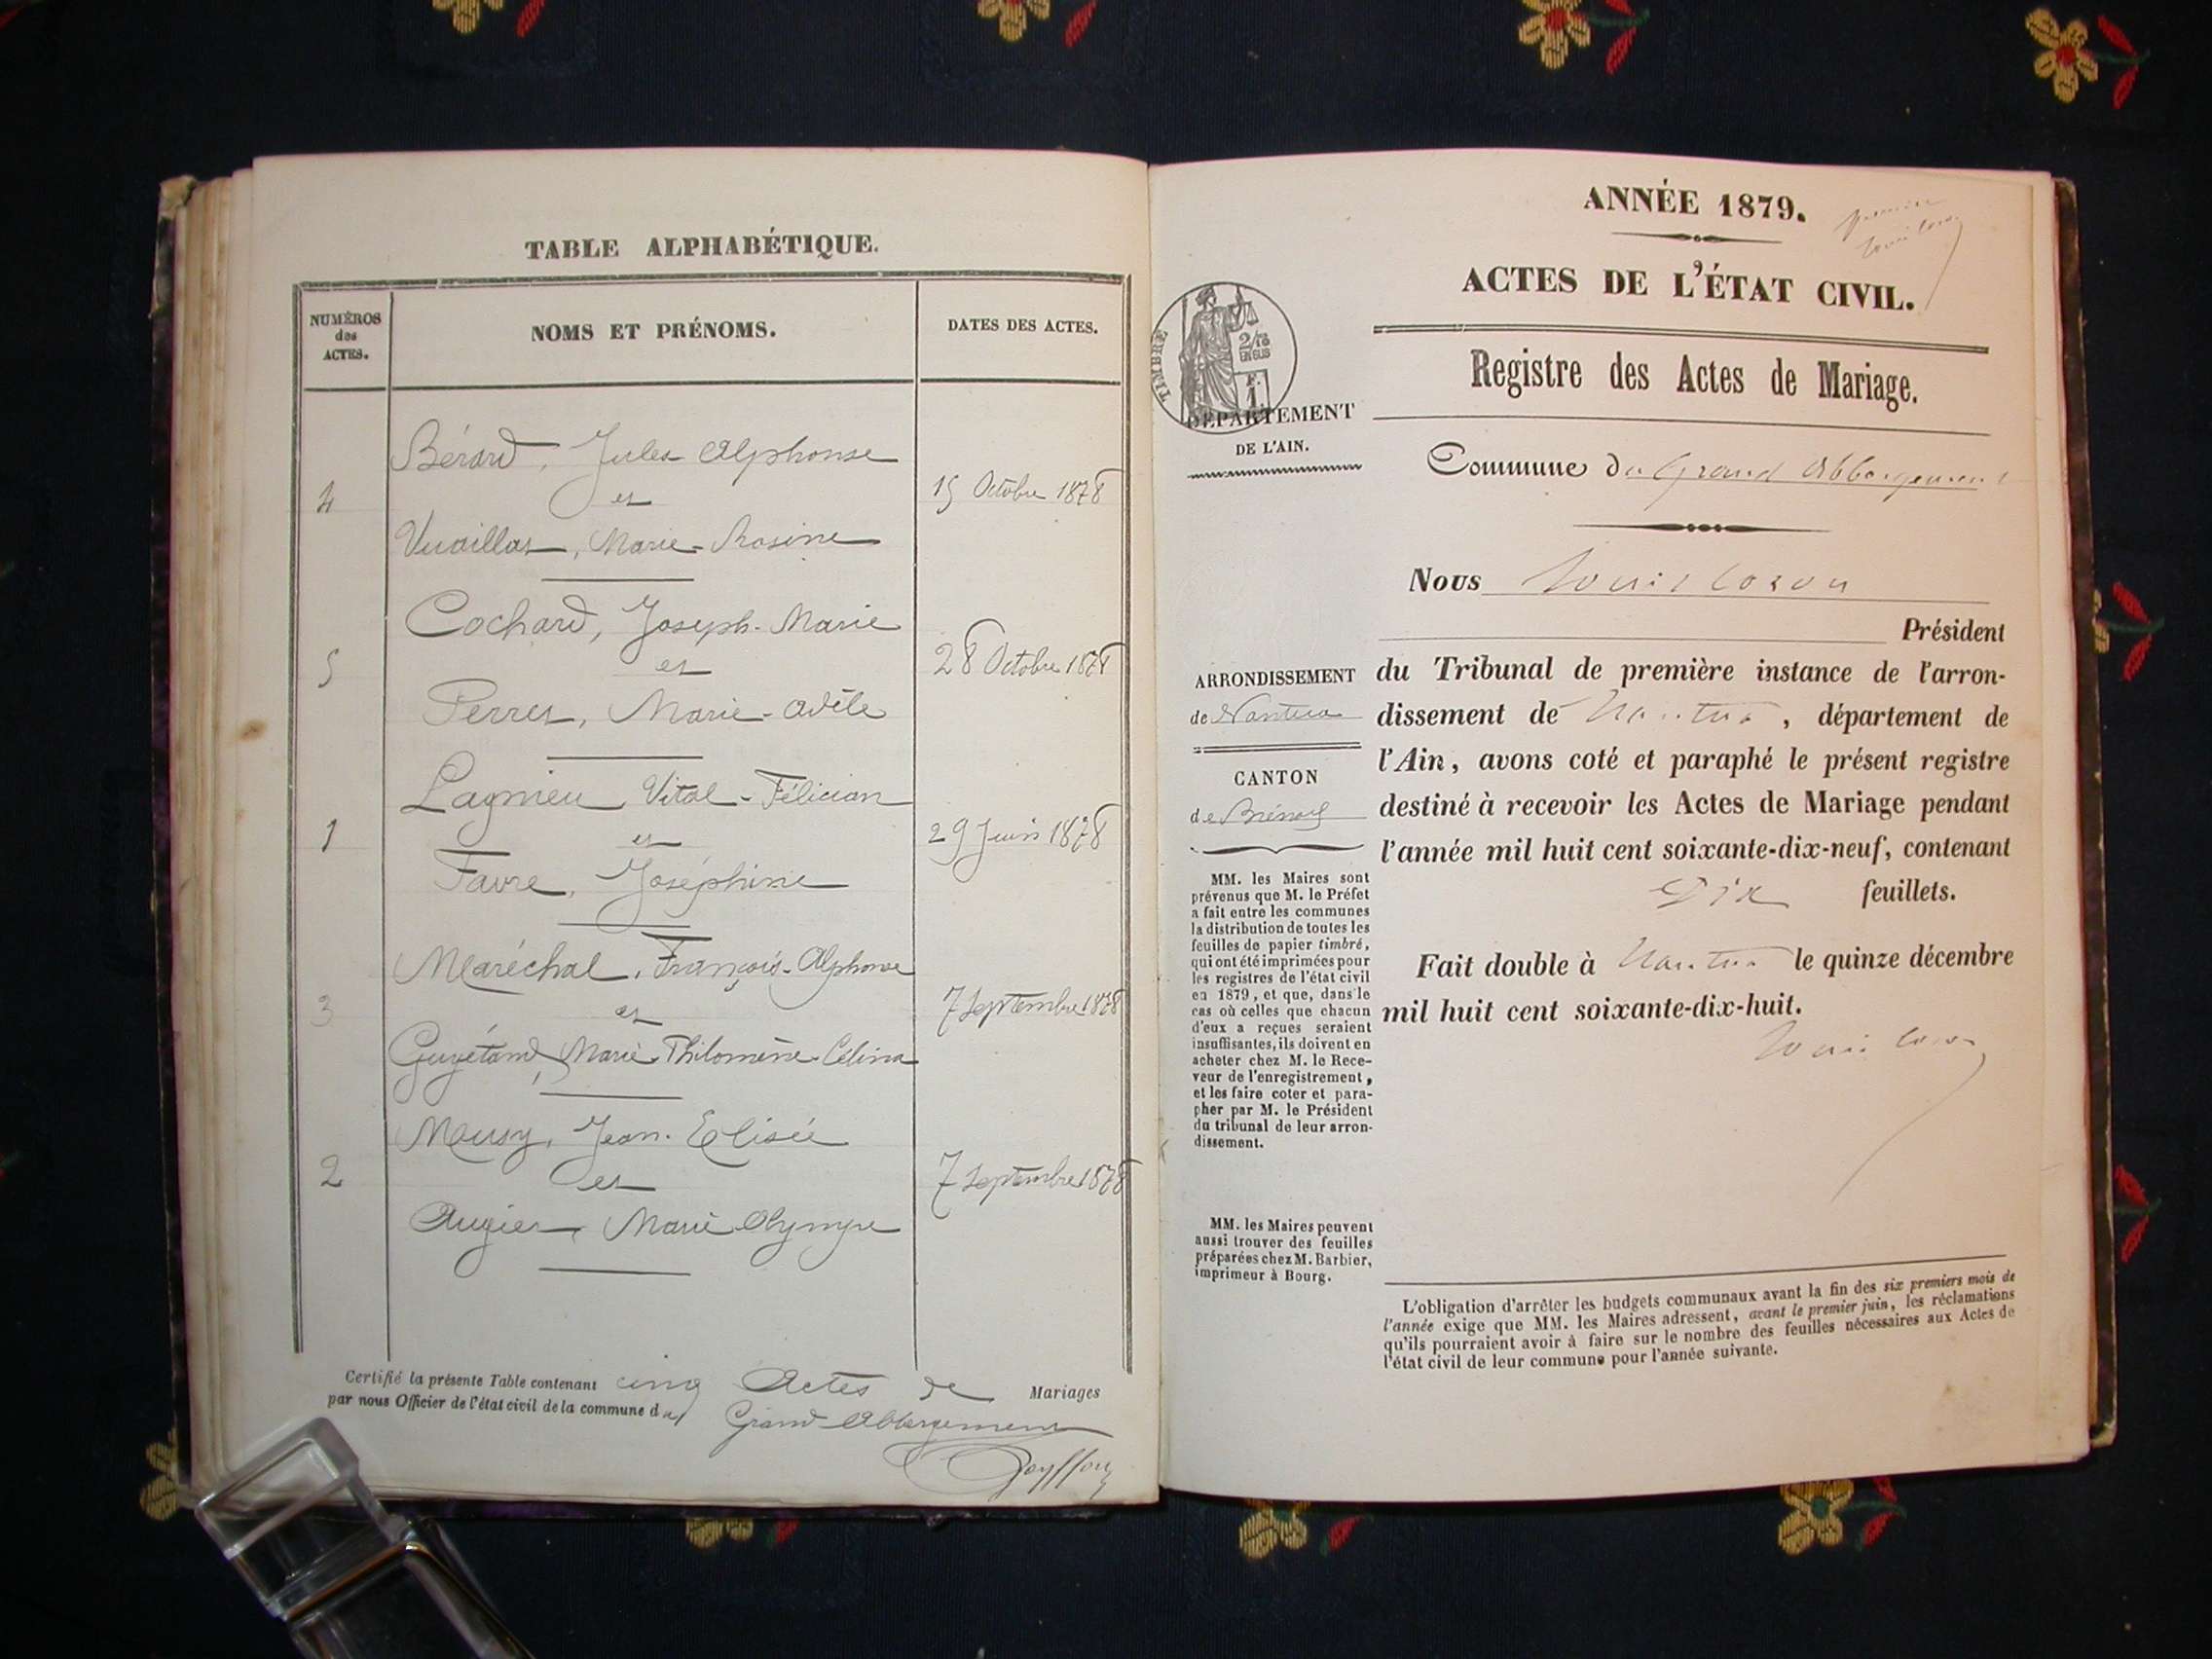 TABLE ALPHABÉTIQUE.
NUMÉROS des ACTES.
NOMS ET PRÉNOMS.
DATES DES ACTES.
Bérard, Jules Alphonse
4 et 15 Octobre 1878
Vuaillat, Marie-Rosine
Cochard, Joseph-Marie
5 et 28 Octobre 1878
Perret, Marie-Adèle
Lagnieu Vital-Félicien
1 et 29 Juin 1878
Favre, Joséphine
Maréchal, François-Alphonse
3 et 7 Septembre 1878
Guyétand, Marie-Philomène-Célina
Mousy, Jean-Elisée
2 et 7 Septembre 1878
Augier, Marie Olympe
Certifié la présente Table contenant cinq Actes de Mariages
par nous Officier de l'état civil de la commune du Grand-Abbergement
ANNÉE 1879.
ACTES DE L'ÉTAT CIVIL.
Registre des Actes de Mariage.
TIMBRE
2/10
EN SUS
F.
1
DÉPARTEMENT
DE L'AIN.
Commune du Grand Abbergement
Nous
Président
du Tribunal de première instance de l'arron-
dissement de Nantua, département de
l'Ain, avons coté et paraphé le présent registre
destiné à recevoir les Actes de Mariage pendant
l'année mil huit cent soixante-dix-neuf, contenant
Dix feuillets.
Fait double à Nantua le quinze décembre
mil huit cent soixante-dix-huit.
ARRONDISSEMENT
de Nantua
CANTON
de Brénod
MM. les Maires sont
prévenus que M. le Préfet
a fait entre les communes
la distribution de toutes les
feuilles de papier timbré,
qui ont été imprimées pour
les registres de l'état civil
en 1879, et que, dans le
cas où celles que chacun
d'eux a reçues seraient
insuffisantes, ils doivent en
acheter chez M. le Rece-
veur de l'enregistrement,
et les faire coter et para-
pher par M. le Président
du tribunal de leur arron-
dissement.
MM. les Maires peuvent
aussi trouver des feuilles
préparées chez M. Barbier,
imprimeur à Bourg.
L'obligation d'arrêter les budgets communaux avant la fin des six premiers mois de
l'année exige que MM. les Maires adressent, avant le premier juin, les réclamations
qu'ils pourraient avoir à faire sur le nombre des feuilles nécessaires aux Actes de
l'état civil de leur commune pour l'année suivante.